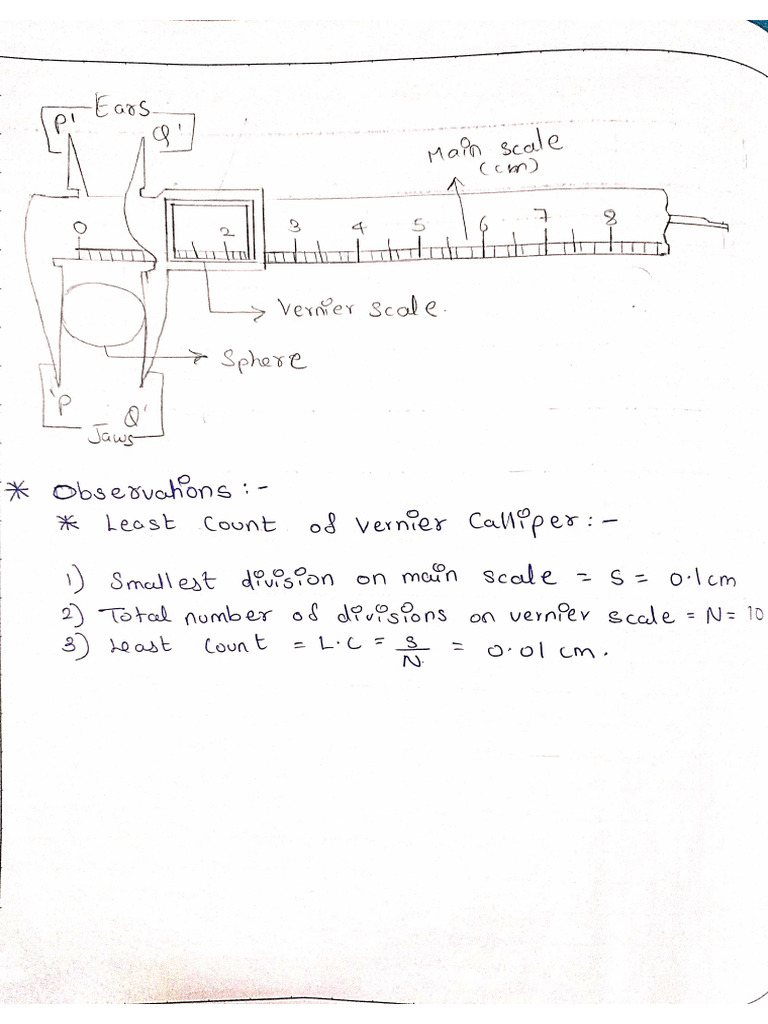 Ears
P' Q'
Main scale
(cm)
0 2 3 4 5 6 7 8
Vernier scale.
Sphere
'P Q'
Jaws
* Observations :-
* Least Count of Vernier Calliper :-
1) Smallest division on main scale = S = 0.1 cm
2) Total number of divisions on vernier scale = N = 10
3) Least Count = L.C = S/N = 0.01 cm.